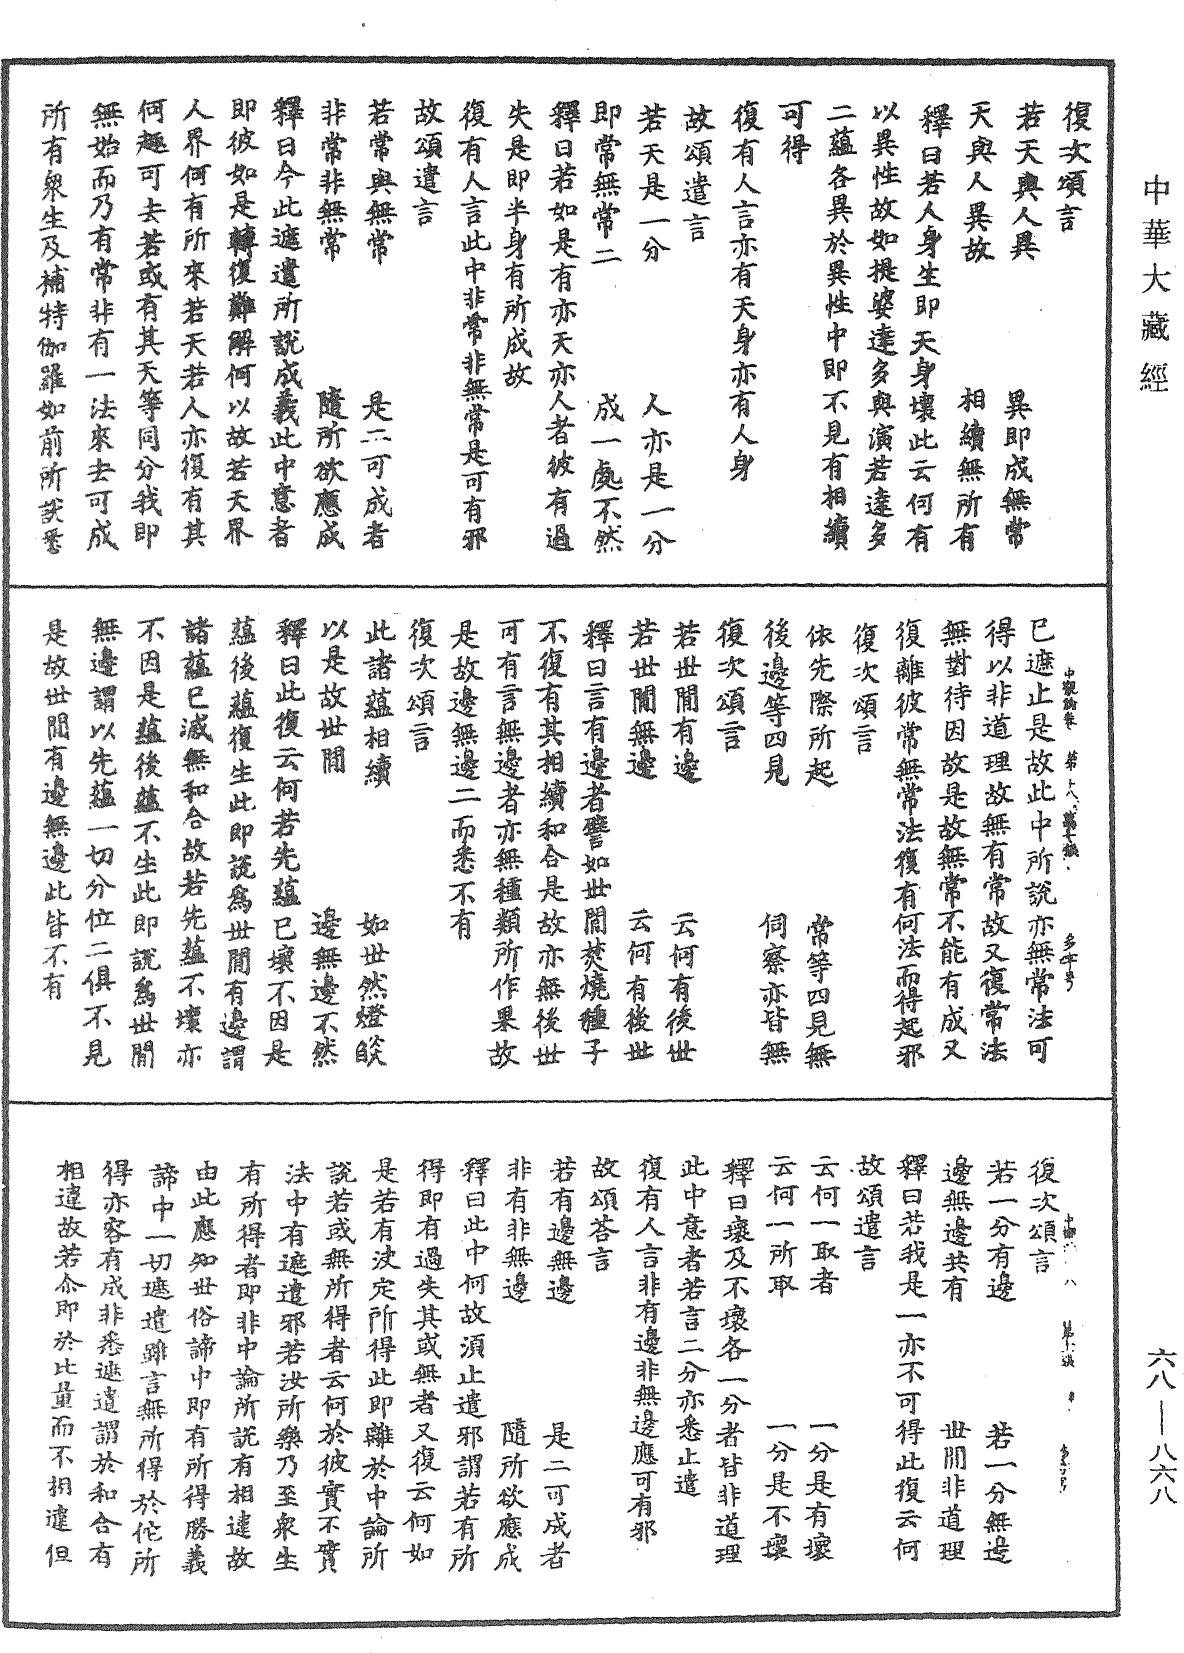 中華大藏經
復次頌言
若天與人異　異即成無常
天與人異故　相續無所有
釋曰若人身生即天身壞此云何有
以異性故如提婆達多與演若達多
二蘊各異於異性中即不見有相續
可得
復有人言亦有天身亦有人身
故頌遣言
若天是一分　人亦是一分
即常無常二　成一處不然
釋曰若如是有亦天亦人者彼有過
失是即半身有所成故
復有人言此中非常非無常是可有邪
故頌遣言
若常與無常　是二可成者
非常非無常　隨所欲應成
釋曰今此遮遣所說成義此中意者
即彼如是轉復難解何以故若天界
人界何有所來若天若人亦復有其
何趣可去若或有其天等同分我即
無始而乃有常非有一法來去可成
所有眾生及補特伽羅如前所說悉
已遮止是故此中所說亦無常法可
得以非道理故無有常故又復常法
無對待因故是故無常不能有成又
復離彼常無常法復有何法而得起邪
復次頌言
依先際所起　常等四見無
後邊等四見　伺察亦皆無
復次頌言
若世間有邊　云何有後世
若世間無邊　云何有後世
釋曰言有邊者譬如世間焚燒種子
不復有其相續和合是故亦無後世
可有言無邊者亦無種類所作果故
是故邊無邊二而悉不有
復次頌言
此諸蘊相續　如世然燈燄
以是故世間　邊無邊不然
釋曰此復云何若先蘊已壞不因是
蘊後蘊復生此即說為世間有邊謂
諸蘊已滅無和合故若先蘊不壞亦
不因是蘊後蘊不生此即說為世間
無邊謂以先蘊一切分位二俱不見
是故世間有邊無邊此皆不有
復次頌言
若一分有邊　若一分無邊
邊無邊共有　世間非道理
釋曰若我是一亦不可得此復云何
故頌遣言
云何一取者　一分是有壞
云何一所取　一分是不壞
釋曰壞及不壞各一分者皆非道理
此中意者若言二分亦悉止遣
復有人言非有邊非無邊應可有邪
故頌答言
若有邊無邊　是二可成者
非有非無邊　隨所欲應成
釋曰此中何故須止遣邪謂若有所
得即有過失其或無者又復云何如
是若有決定所得此即離於中論所
說若或無所得者云何於彼實不實
法中有遮遣邪若汝所樂乃至眾生
有所得者即非中論所說有相違故
由此應知世俗諦中即有所得勝義
諦中一切遮遣雖言無所得於佗所
得亦容有成非悉遮遣謂於和合有
相違故若尒即於比量而不相違但
六八—八六八